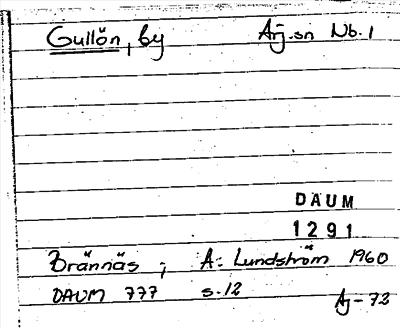 Gullön, by Arj.sn Nb.1
DAUM
1291
Brännäs; A. Lundström 1960
DAUM 777 s.12 Aj-72